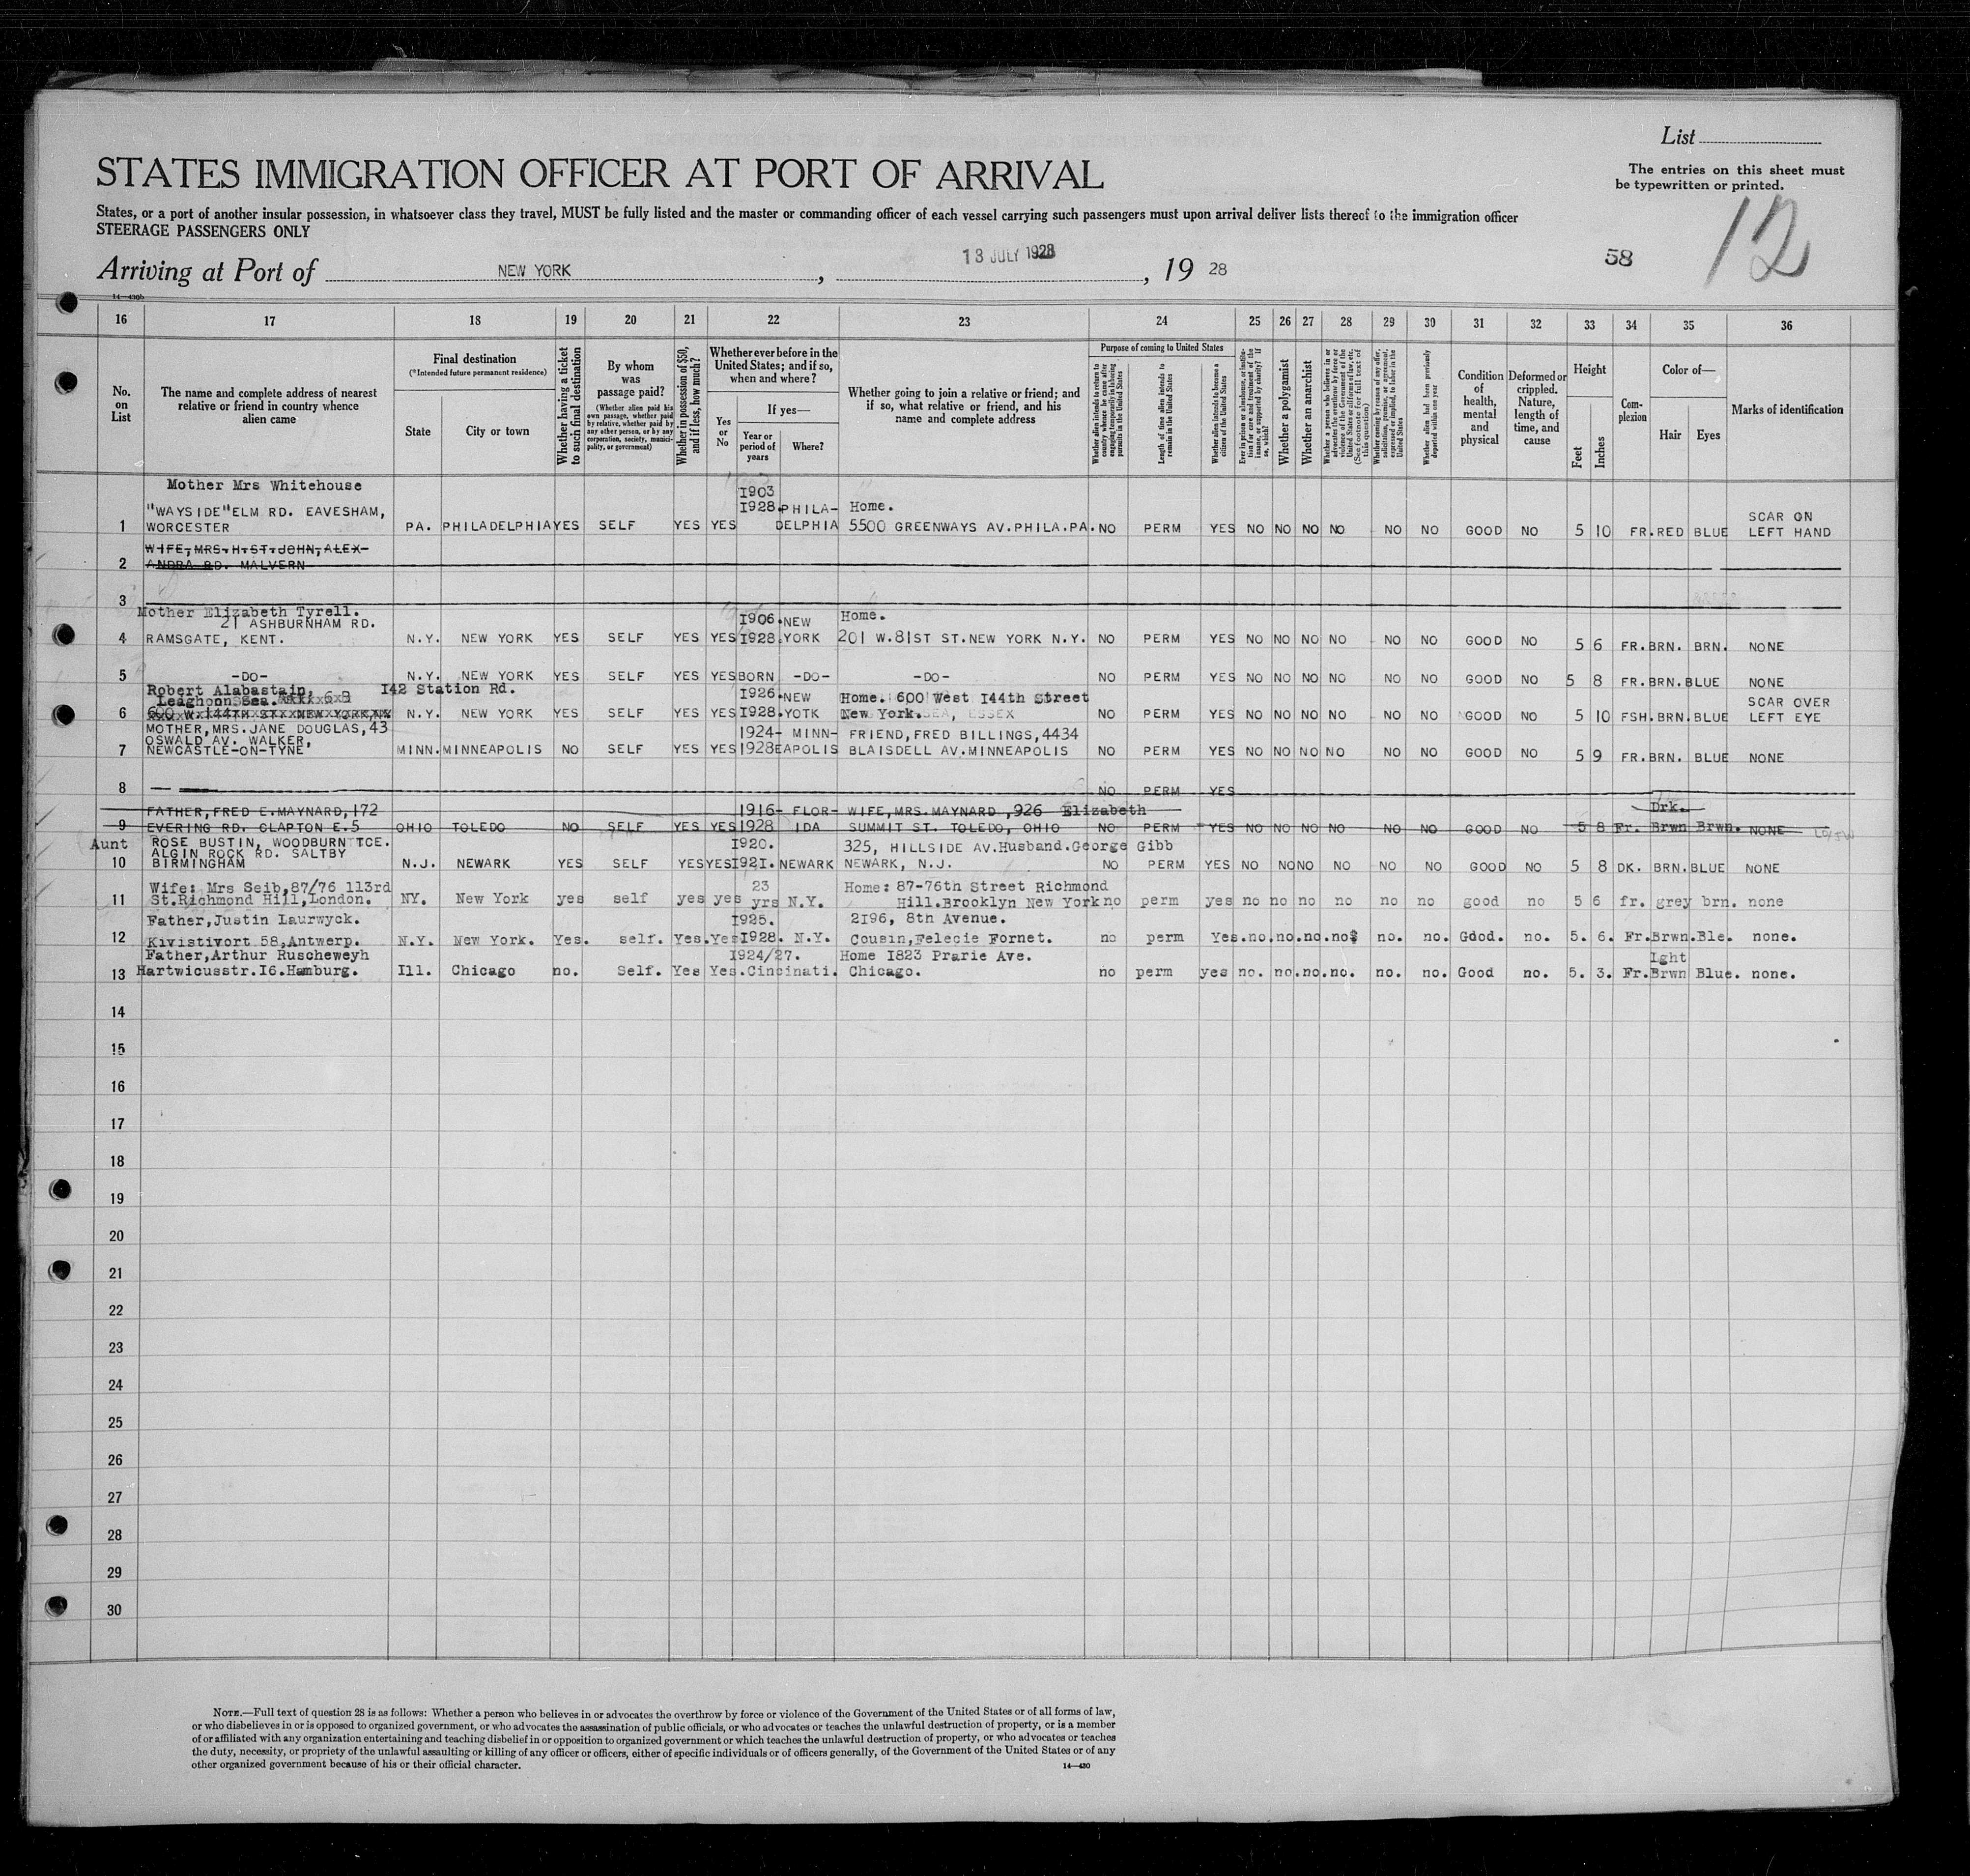 List
The entries on this sheet must
be typewritten or printed.
STATES IMMIGRATION OFFICER AT PORT OF ARRIVAL
States, or a port of another insular possession, in whatsoever class they travel, MUST be fully listed and the master or commanding officer of each vessel carrying such passengers must upon arrival deliver lists thereof to the immigration officer
STEERAGE PASSENGERS ONLY
58 12
Arriving at Port of NEW YORK, 13 JULY 1928, 19 28
14—430b
16 17 18 19 20 21 22 23 24 25 26 27 28 29 30 31 32 33 34 35 36
No. on List
The name and complete address of nearest relative or friend in country whence alien came
Final destination
(*Intended future permanent residence)
State
City or town
Whether having a ticket to such final destination
By whom was passage paid?
(Whether alien paid his own passage, whether paid by relative, whether paid by any other person, or by any corporation, society, municipality, or government)
Whether in possession of $50, and if less, how much?
Whether ever before in the United States; and if so, when and where?
Yes or No
If yes—
Year or period of years
Where?
Whether going to join a relative or friend; and if so, what relative or friend, and his name and complete address
Purpose of coming to United States
Whether alien intends to return to country whence he came after engaging temporarily in laboring pursuits in the United States
Length of time alien intends to remain in the United States
Whether alien intends to become a citizen of the United States
Ever in prison or almshouse, or institution for care and treatment of the insane, or supported by charity? If so, which?
Whether a polygamist
Whether an anarchist
Whether a person who believes in or advocates the overthrow by force or violence of the Government of the United States or all forms of law, etc. (See footnote for full text of this question)
Whether coming by reason of any offer, solicitation, promise, or agreement, expressed or implied, to labor in the United States
Whether alien had been previously deported within one year
Condition of health, mental and physical
Deformed or crippled. Nature, length of time, and cause
Height
Feet
Inches
Complexion
Color of—
Hair
Eyes
Marks of identification
Mother Mrs Whitehouse 1903
"WAYSIDE" ELM RD. EAVESHAM, 1928. PHILA- Home. SCAR ON
1 WORCESTER PA. PHILADELPHIA YES SELF YES YES DELPHIA 5500 GREENWAYS AV.PHILA.PA. NO PERM YES NO NO NO NO NO NO GOOD NO 5 10 FR. RED BLUE LEFT HAND
WIFE, MRS. H. ST. JOHN, ALEX-
2 ANDRA RD. MALVERN
3
Mother Elizabeth Tyrell.
21 ASHBURNHAM RD. 1906. NEW Home.
4 RAMSGATE, KENT. N.Y. NEW YORK YES SELF YES YES 1928. YORK 201 W.81ST ST.NEW YORK N.Y. NO PERM YES NO NO NO NO NO NO GOOD NO 5 6 FR. BRN. BRN. NONE
5 -DO- N.Y. NEW YORK YES SELF YES YES BORN -DO- -DO- NO PERM YES NO NO NO NO NO NO GOOD NO 5 8 FR. BRN. BLUE NONE
Robert Alabastain, 142 Station Rd. 1926. NEW Home. 600 West 144th Street SCAR OVER
Leaghoon Sea.
6 600 W. 144TH ST. NEW YORK NY N.Y. NEW YORK YES SELF YES YES 1928. YOTK New York. NO PERM YES NO NO NO NO NO NO GOOD NO 5 10 FSH. BRN. BLUE LEFT EYE
MOTHER, MRS. JANE DOUGLAS, 43 1924- MINN- FRIEND, FRED BILLINGS, 4434
OSWALD AV. WALKER,
7 NEWCASTLE-ON-TYNE MINN. MINNEAPOLIS NO SELF YES YES 1928 EAPOLIS BLAISDELL AV. MINNEAPOLIS NO PERM YES NO NO NO NO NO NO GOOD NO 5 9 FR. BRN. BLUE NONE
8 NO PERM YES
FATHER, FRED E. MAYNARD, 172 1916- FLOR- WIFE, MRS. MAYNARD, 926 Elizabeth Drk.
9 EVERING RD. CLAPTON E.5 OHIO TOLEDO NO SELF YES YES 1928 IDA SUMMIT ST. TOLEDO, OHIO NO PERM YES NO NO NO NO NO NO GOOD NO 5 8 Fr. Brwn Brwn. NONE
Aunt ROSE BUSTIN, WOODBURN TCE. 1920. 325, HILLSIDE AV. Husband. George Gibb
ALGIN ROCK RD. SALTBY
10 BIRMINGHAM N.J. NEWARK YES SELF YES YES 1921. NEWARK NEWARK, N.J. NO PERM YES NO NO NO NO NO NO GOOD NO 5 8 DK. BRN. BLUE NONE
Wife: Mrs Seib, 87/76 113rd 23 Home: 87-76th Street Richmond
11 St. Richmond Hill, London. NY. New York yes self yes yes yrs N.Y. Hill. Brooklyn New York no perm yes no no no no no no good no 5 6 fr. grey brn. none
Father, Justin Laurwyck. 1925. 2196, 8th Avenue.
12 Kivistivort 58, Antwerp. N.Y. New York. Yes. self. Yes. Yes 1928. N.Y. Cousin, Felecie Fornet. no perm Yes. no. no. no. no. no. no. Good. no. 5. 6. Fr. Brwn. Ble. none.
Father, Arthur Ruscheweyh 1924/27. Home 1823 Prarie Ave. Lght
13 Hartwicusstr. 16. Hamburg. Ill. Chicago no. Self. Yes Yes. Cincinati. Chicago. no perm yes no. no. no. no. no. no. Good no. 5. 3. Fr. Brwn Blue. none.
14
15
16
17
18
19
20
21
22
23
24
25
26
27
28
29
30
NOTE.—Full text of question 28 is as follows: Whether a person who believes in or advocates the overthrow by force or violence of the Government of the United States or of all forms of law,
or who disbelieves in or is opposed to organized government, or who advocates the assassination of public officials, or who advocates or teaches the unlawful destruction of property, or is a member
of or affiliated with any organization entertaining and teaching disbelief in or opposition to organized government or which teaches the unlawful destruction of property, or who advocates or teaches
the duty, necessity, or propriety of the unlawful assaulting or killing of any officer or officers, either of specific individuals or of officers generally, of the Government of the United States or of any
other organized government because of his or their official character.
14—430